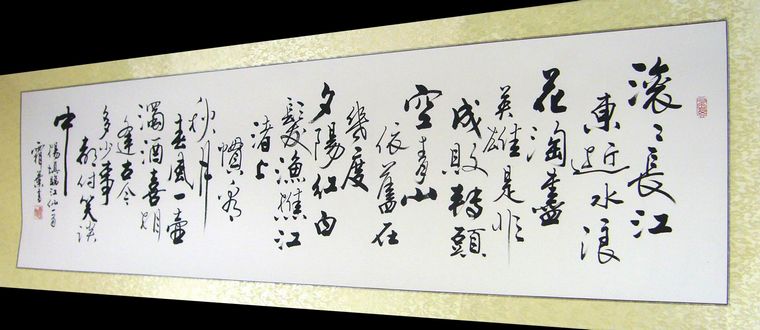 滾〻長江
東逝水浪
花淘盡
英雄是非
成敗轉頭
空青山
依舊在
幾度
夕陽紅白
髮漁樵江
渚上
慣看
秋月
春風一壺
濁酒喜相
逢古今
多少事
都付笑談
中
楊慎臨江仙一首
霜葉書